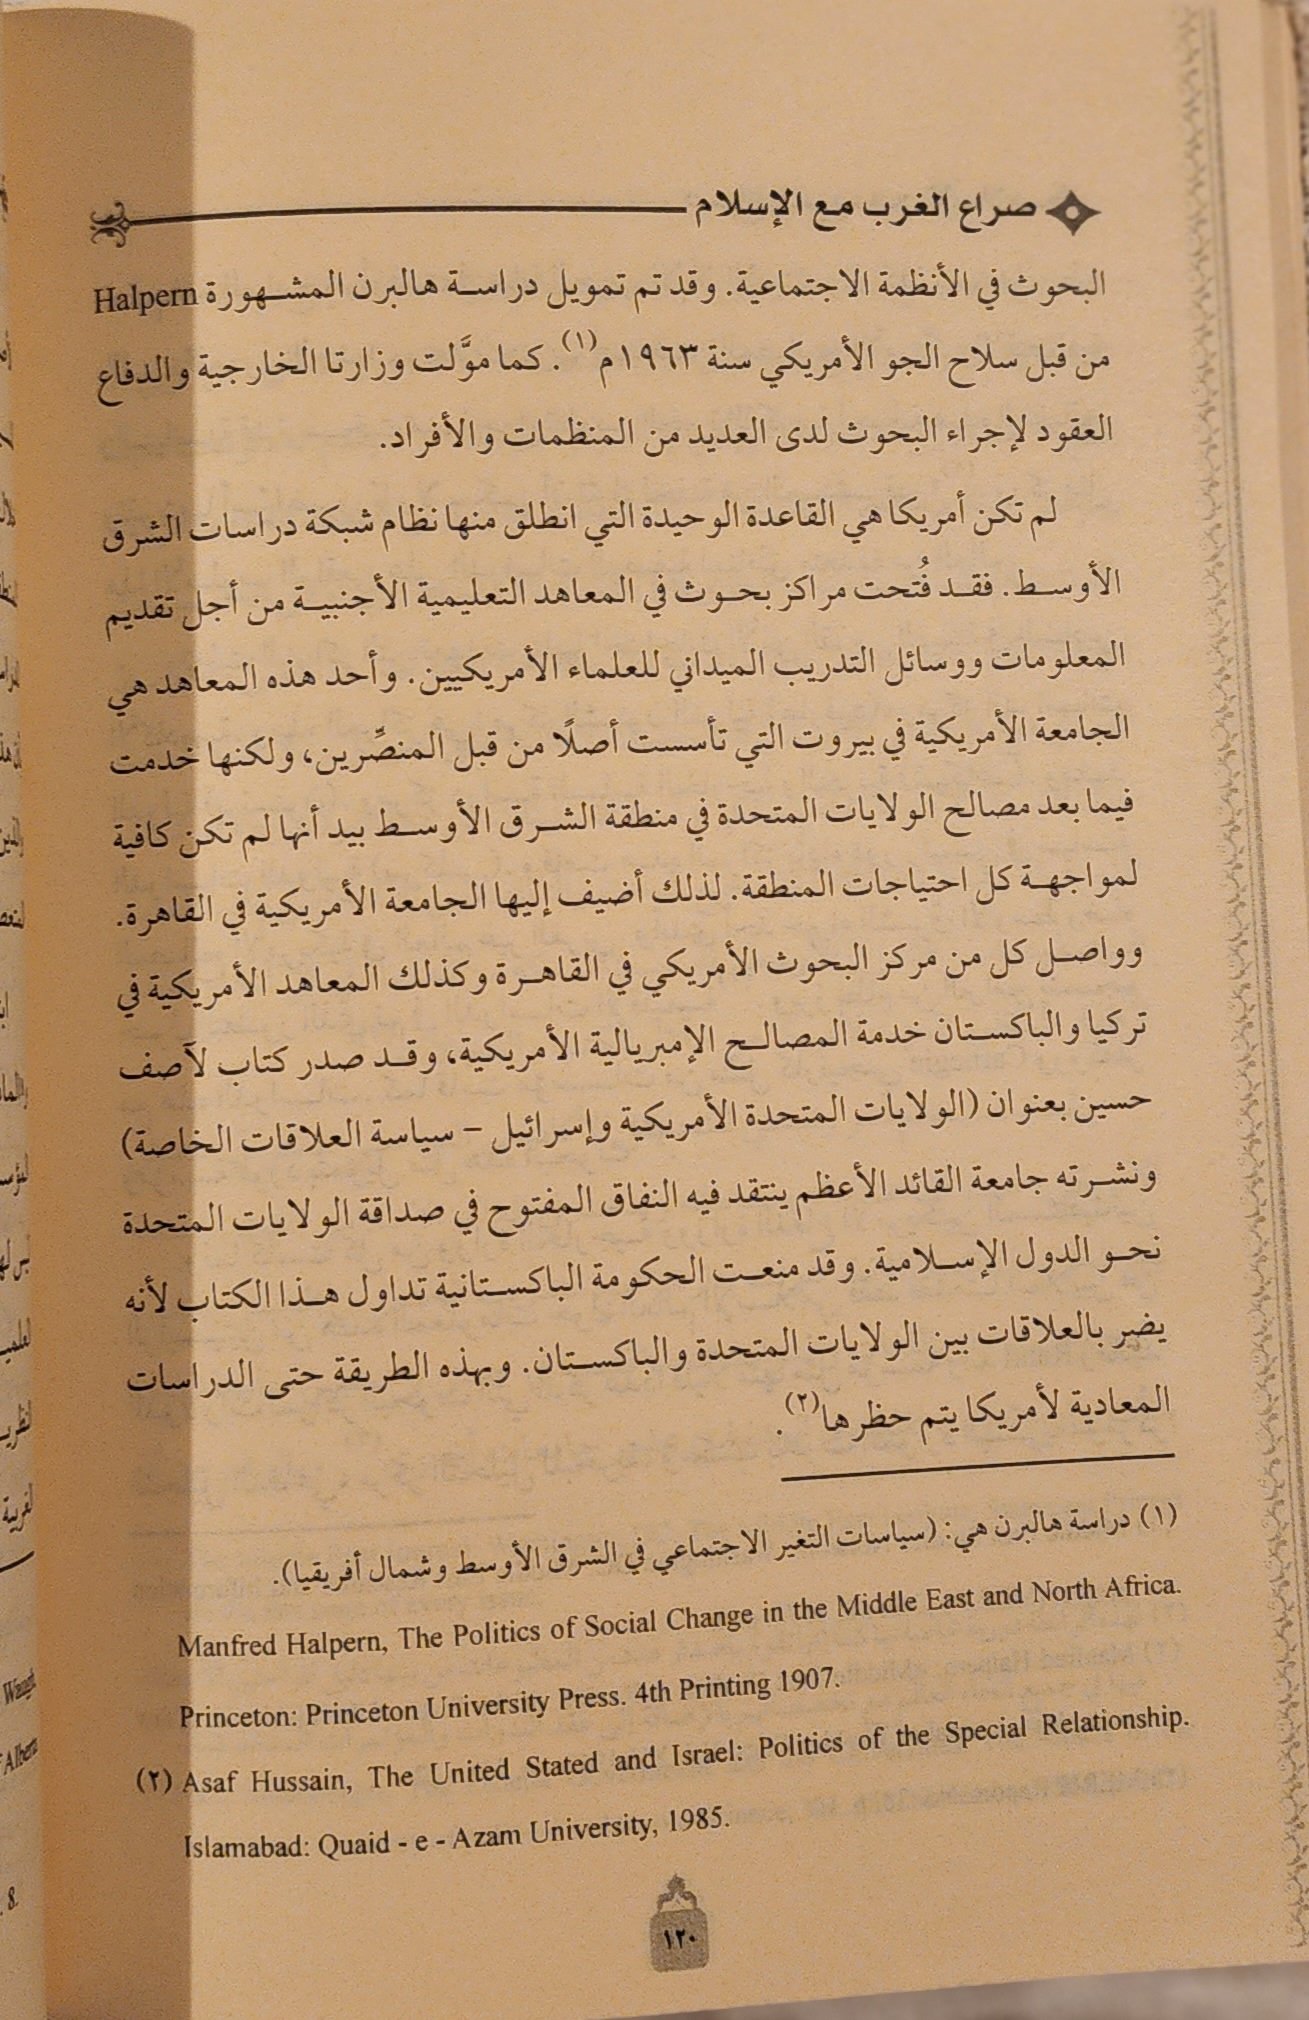 صراع الغرب مع الإسلام
البحوث في الأنظمة الاجتماعية. وقد تم تمويل دراسة هالبرن المشهورة Halpern
من قبل سلاح الجو الأمريكي سنة ١٩٦٣م(١). كما موَّلت وزارتا الخارجية والدفاع
العقود لإجراء البحوث لدى العديد من المنظمات والأفراد.
لم تكن أمريكا هي القاعدة الوحيدة التي انطلق منها نظام شبكة دراسات الشرق
الأوسط. فقد فُتحت مراكز بحوث في المعاهد التعليمية الأجنبية من أجل تقديم
المعلومات ووسائل التدريب الميداني للعلماء الأمريكيين. وأحد هذه المعاهد هي
الجامعة الأمريكية في بيروت التي تأسست أصلًا من قبل المنصِّرين، ولكنها خدمت
فيما بعد مصالح الولايات المتحدة في منطقة الشرق الأوسط بيد أنها لم تكن كافية
لمواجهة كل احتياجات المنطقة. لذلك أضيف إليها الجامعة الأمريكية في القاهرة.
وواصل كل من مركز البحوث الأمريكي في القاهرة وكذلك المعاهد الأمريكية في
تركيا والباكستان خدمة المصالح الإمبريالية الأمريكية، وقد صدر كتاب لآصف
حسين بعنوان (الولايات المتحدة الأمريكية وإسرائيل – سياسة العلاقات الخاصة)
ونشرته جامعة القائد الأعظم ينتقد فيه النفاق المفتوح في صداقة الولايات المتحدة
نحو الدول الإسلامية. وقد منعت الحكومة الباكستانية تداول هذا الكتاب لأنه
يضر بالعلاقات بين الولايات المتحدة والباكستان. وبهذه الطريقة حتى الدراسات
المعادية لأمريكا يتم حظرها(٢).
(١) دراسة هالبرن هي: (سياسات التغير الاجتماعي في الشرق الأوسط وشمال أفريقيا).
Manfred Halpern, The Politics of Social Change in the Middle East and North Africa.
Princeton: Princeton University Press. 4th Printing 1907.
(٢) Asaf Hussain, The United Stated and Israel: Politics of the Special Relationship.
Islamabad: Quaid - e - Azam University, 1985.
١٢٠